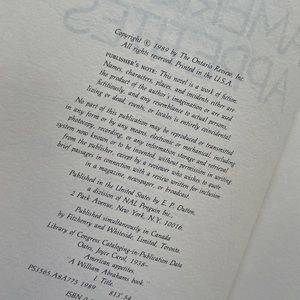 Copyright © 1989 by The Ontario Review, Inc.
All rights reserved. Printed in the U.S.A.
PUBLISHER'S NOTE: This novel is a work of fiction.
Names, characters, places, and incidents either are
the product of the author's imagination or are used
fictitiously, and any resemblance to actual persons,
living or dead, events, or locales is entirely coincidental.
No part of this publication may be reproduced or transmitted
in any form or by any means, electronic or mechanical, including
photocopy, recording, or any information storage and retrieval
system now known or to be invented, without permission in writing
from the publisher, except by a reviewer who wishes to quote
brief passages in connection with a review written for inclusion
in a magazine, newspaper, or broadcast.
Published in the United States by E. P. Dutton,
a division of NAL Penguin Inc.,
2 Park Avenue, New York, N.Y. 10016.
Published simultaneously in Canada
by Fitzhenry and Whiteside, Limited, Toronto.
Library of Congress Cataloging-in-Publication Data
Oates, Joyce Carol, 1938–
American appetites.
"A William Abrahams book."
I. Title.
PS3565.A8A775 1989 813'.54
ISBN